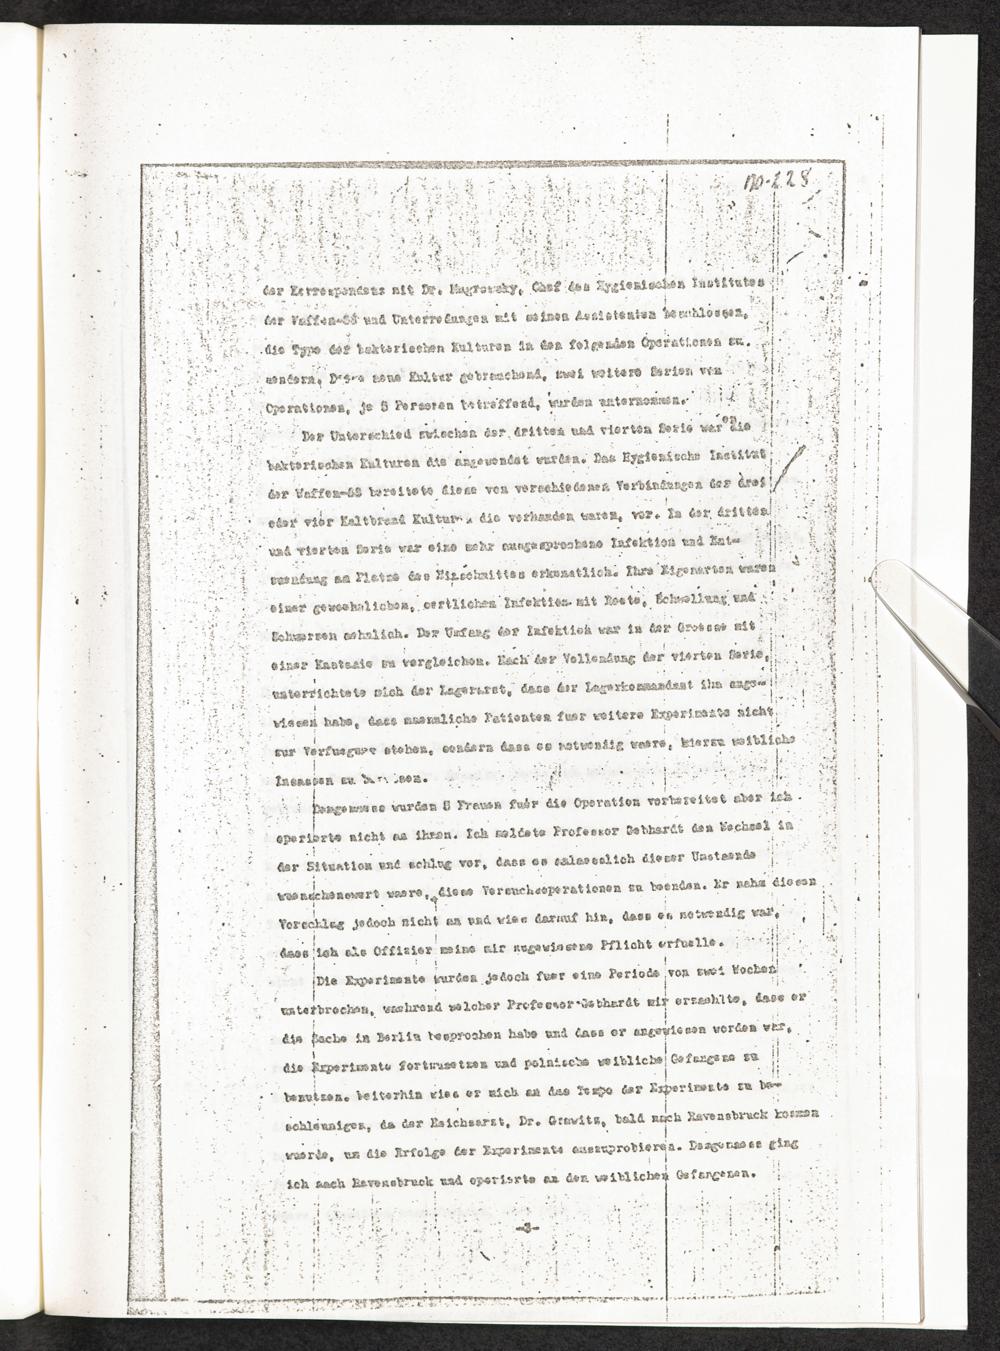 NO-228
der Korrespondenz mit Dr. Mugrowsky, Chef des Hygienischen Institutes
der Waffen-SS und Unterredungen mit seinen Assistenten beschlossen,
die Type der bakterischen Kulturen in den folgenden Operationen zu
aendern. Diese neue Kultur gebrauchend, zwei weitere Serien von
Operationen, je 8 Personen betreffend, wurden unternommen.
Der Unterschied zwischen der dritten und vierten Serie waren die
bakterischen Kulturen die angewendet wurden. Das Hygienische Institut
der Waffen-SS bereitete diese von verschiedenen Verbindungen der drei
oder vier Kaltbrand Kulturen die vorhanden waren, vor. In der dritten
und vierten Serie war eine mehr ausgesprochene Infektion und Ent-
zuendung am Platze des Einschnittes erkenntlich. Ihre Eigenarten waren
einer gewoehnlichen, oertlichen Infektion mit Roete, Schwellung und
Schmerzen aehnlich. Der Umfang der Infektion war in der Groesse mit
einer Kastanie zu vergleichen. Nach der Vollendung der vierten Serie,
unterrichtete mich der Lagerarzt, dass der Lagerkommandant ihn ange-
wiesen habe, dass maennliche Patienten fuer weitere Experimente nicht
zur Verfuegung stehen, sondern dass es notwendig waere, hierzu weibliche
Insassen zu
Demgemaess wurden 5 Frauen fuer die Operation vorbereitet aber ich
operierte nicht an ihnen. Ich meldete Professor Gebhardt den Wechsel in
der Situation und schlug vor, dass es anlaesslich dieser Umstaende
wuenschenswert waere, diese Versuchsoperationen zu beenden. Er nahm diesen
Vorschlag jedoch nicht an und wies darauf hin, dass es notwendig war,
dass ich als Offizier meine mir zugewiesene Pflicht erfuelle.
Die Experimente wurden jedoch fuer eine Periode von zwei Wochen
unterbrochen, waehrend welcher Professor Gebhardt mir erzaehlte, dass er
die Sache in Berlin besprochen habe und dass er angewiesen worden war,
die Experimente fortzusetzen und polnische weibliche Gefangene zu
benutzen. Weiterhin wies er mich an das Tempo der Experimente zu be-
schleunigen, da der Reichsarzt, Dr. Grawitz, bald nach Ravensbruck kommen
wuerde, um die Erfolge der Experimente auszuprobieren. Demgemaess ging
ich nach Ravensbruck und operierte an den weiblichen Gefangenen.
-3-